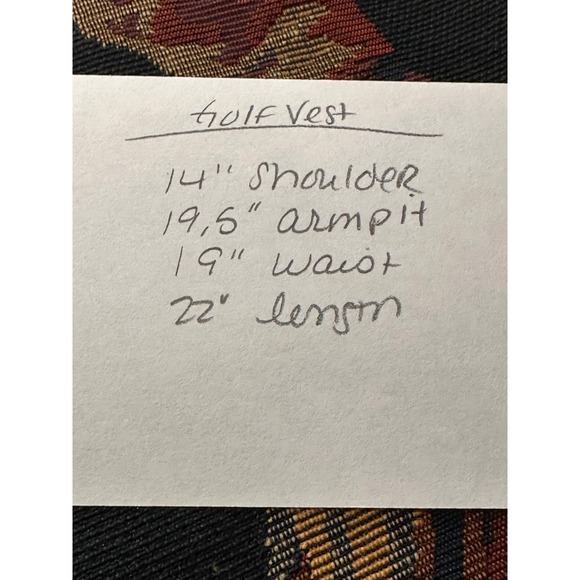 Golf Vest
14" Shoulder
19,5" armpit
19" waist
22" length